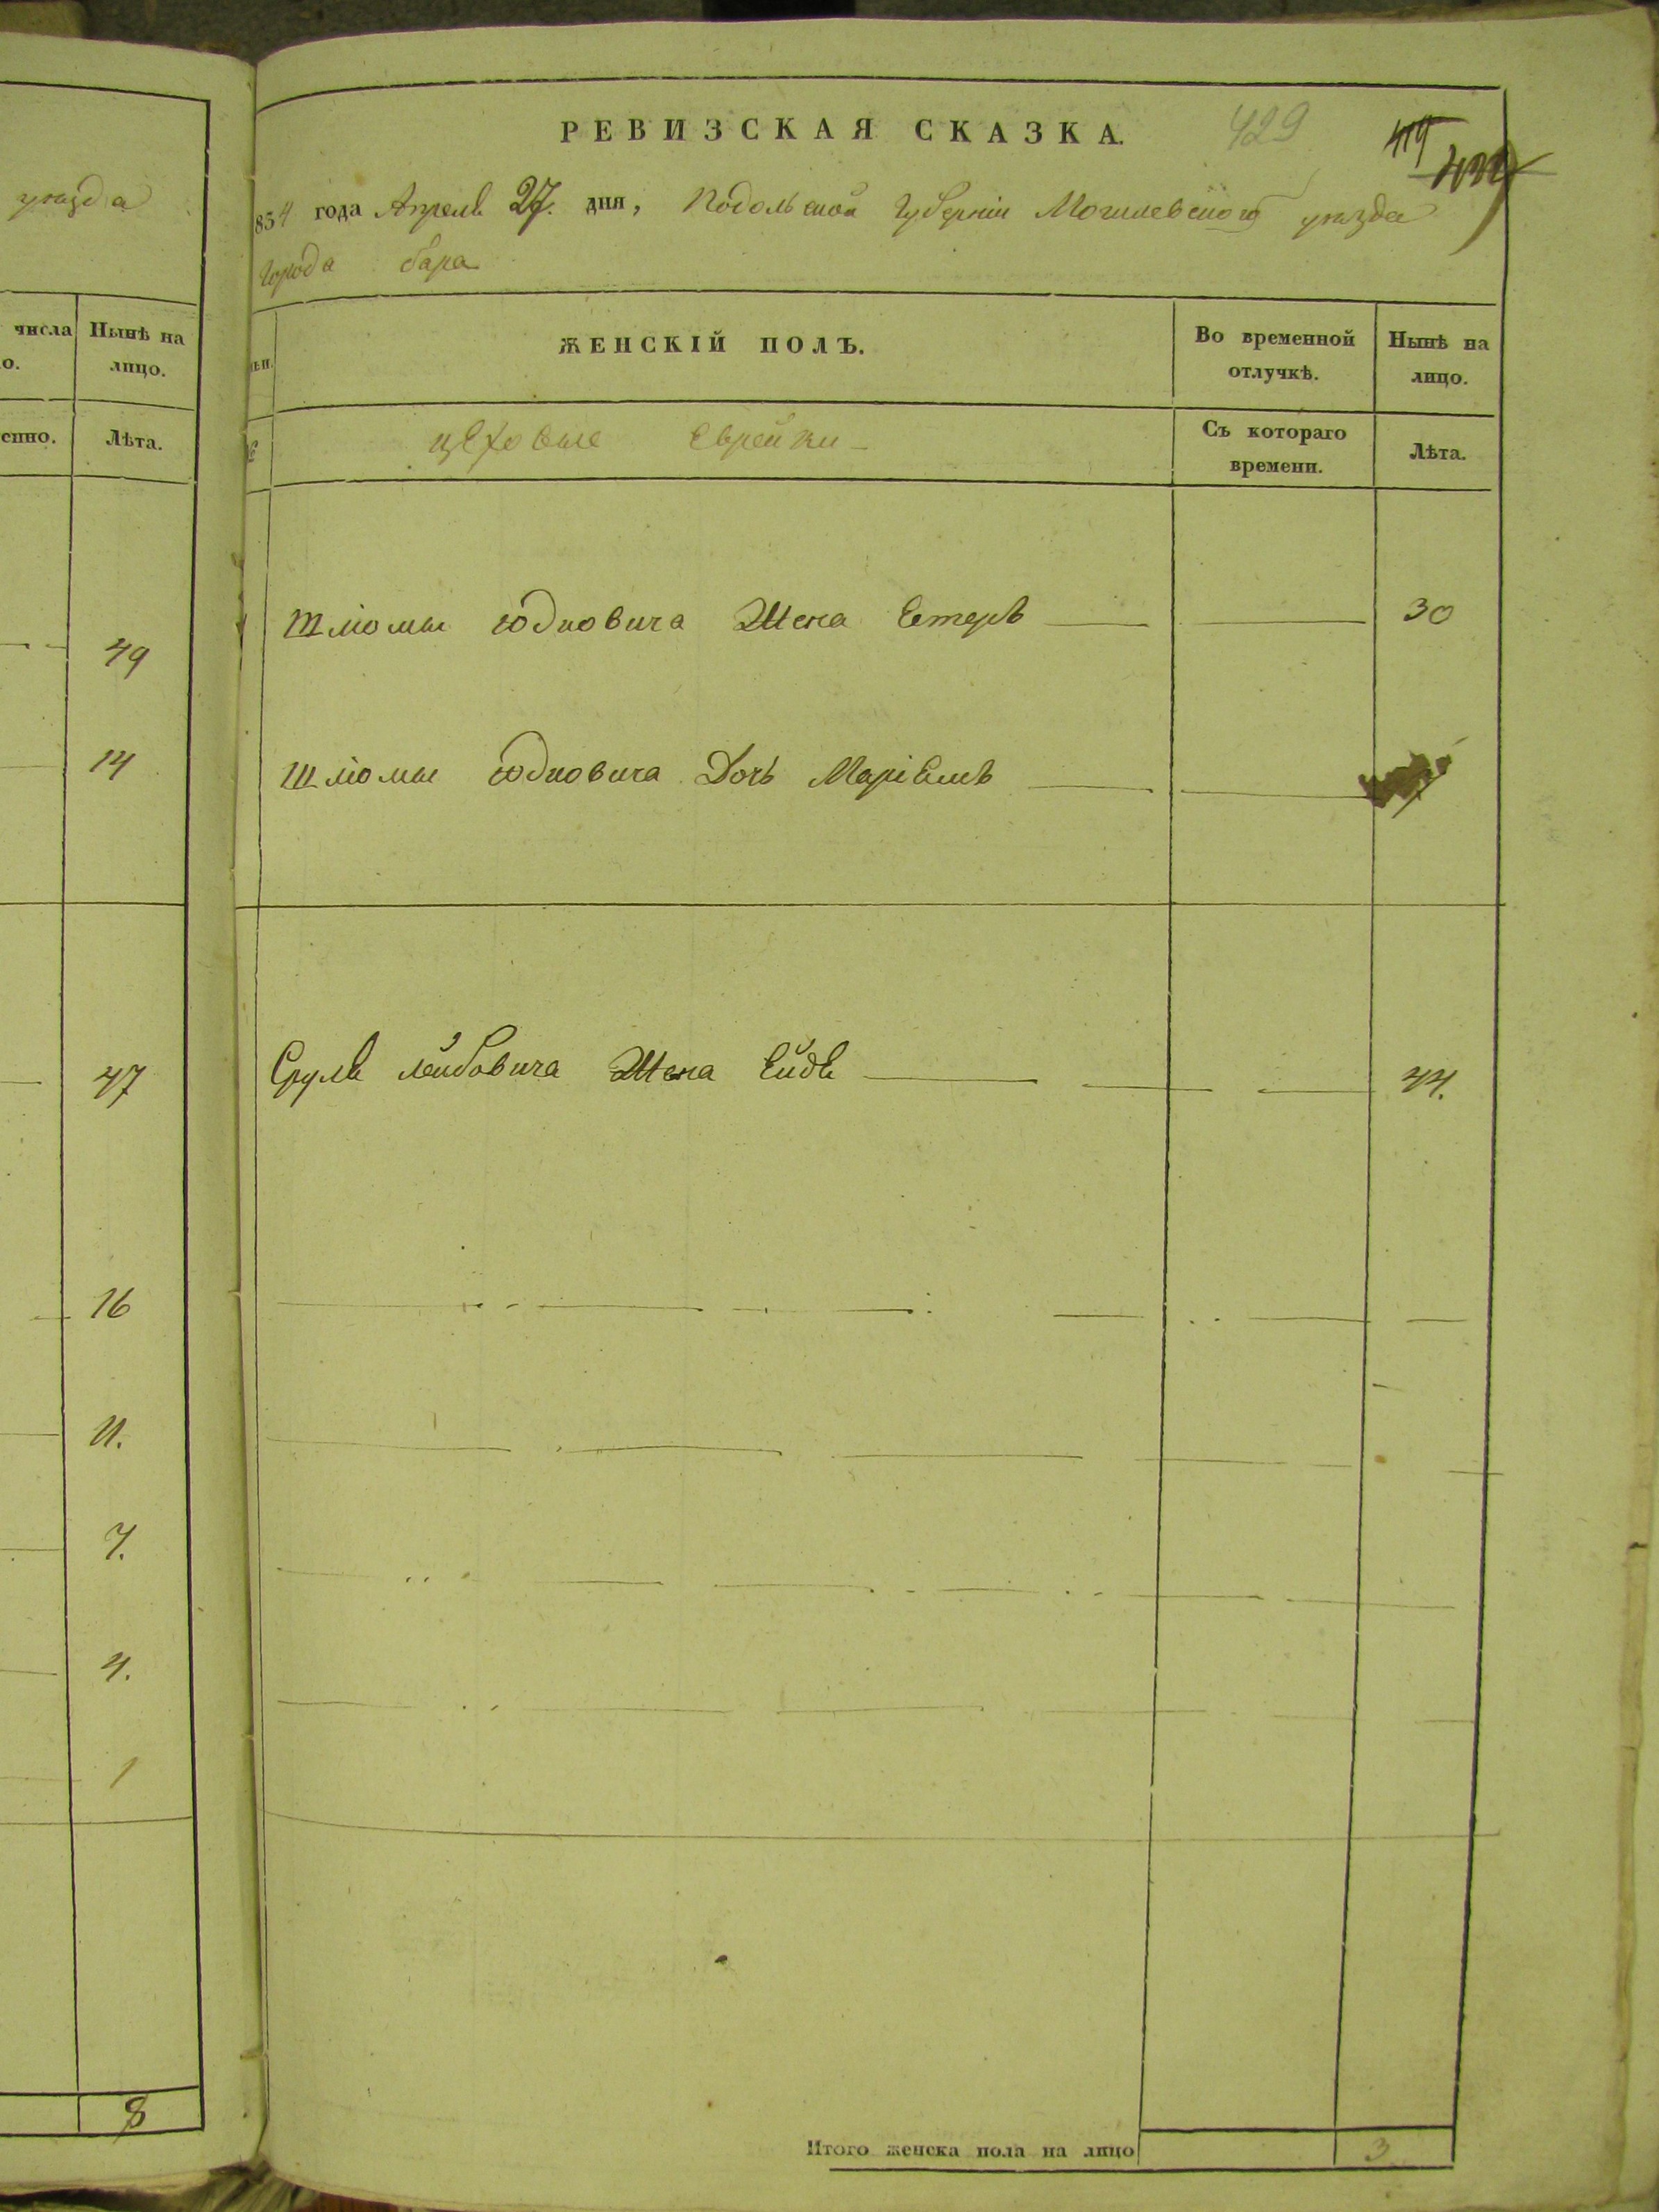 уезда
числа
о.
Нынѣ на
лицо.
енно.
Лѣта.
49
14
47
16
11.
7.
4.
1
8
РЕВИЗСКАЯ СКАЗКА.
429
419
854 года Апреля 27. дня, Подольской Губерніи Могилевского уезда
Города бара
ЖЕНСКІЙ ПОЛЪ.
Во временной
отлучкѣ.
Нынѣ на
лицо.
цеховые Еврейки
Съ котораго
времени.
Лѣта.
Шліомы юдковича Жена Естеръ 30
Шліомы юдковича Дочь Маріемъ
Сруля лейбовича Жена Ейдя 44.
Итого женска пола на лицо 3